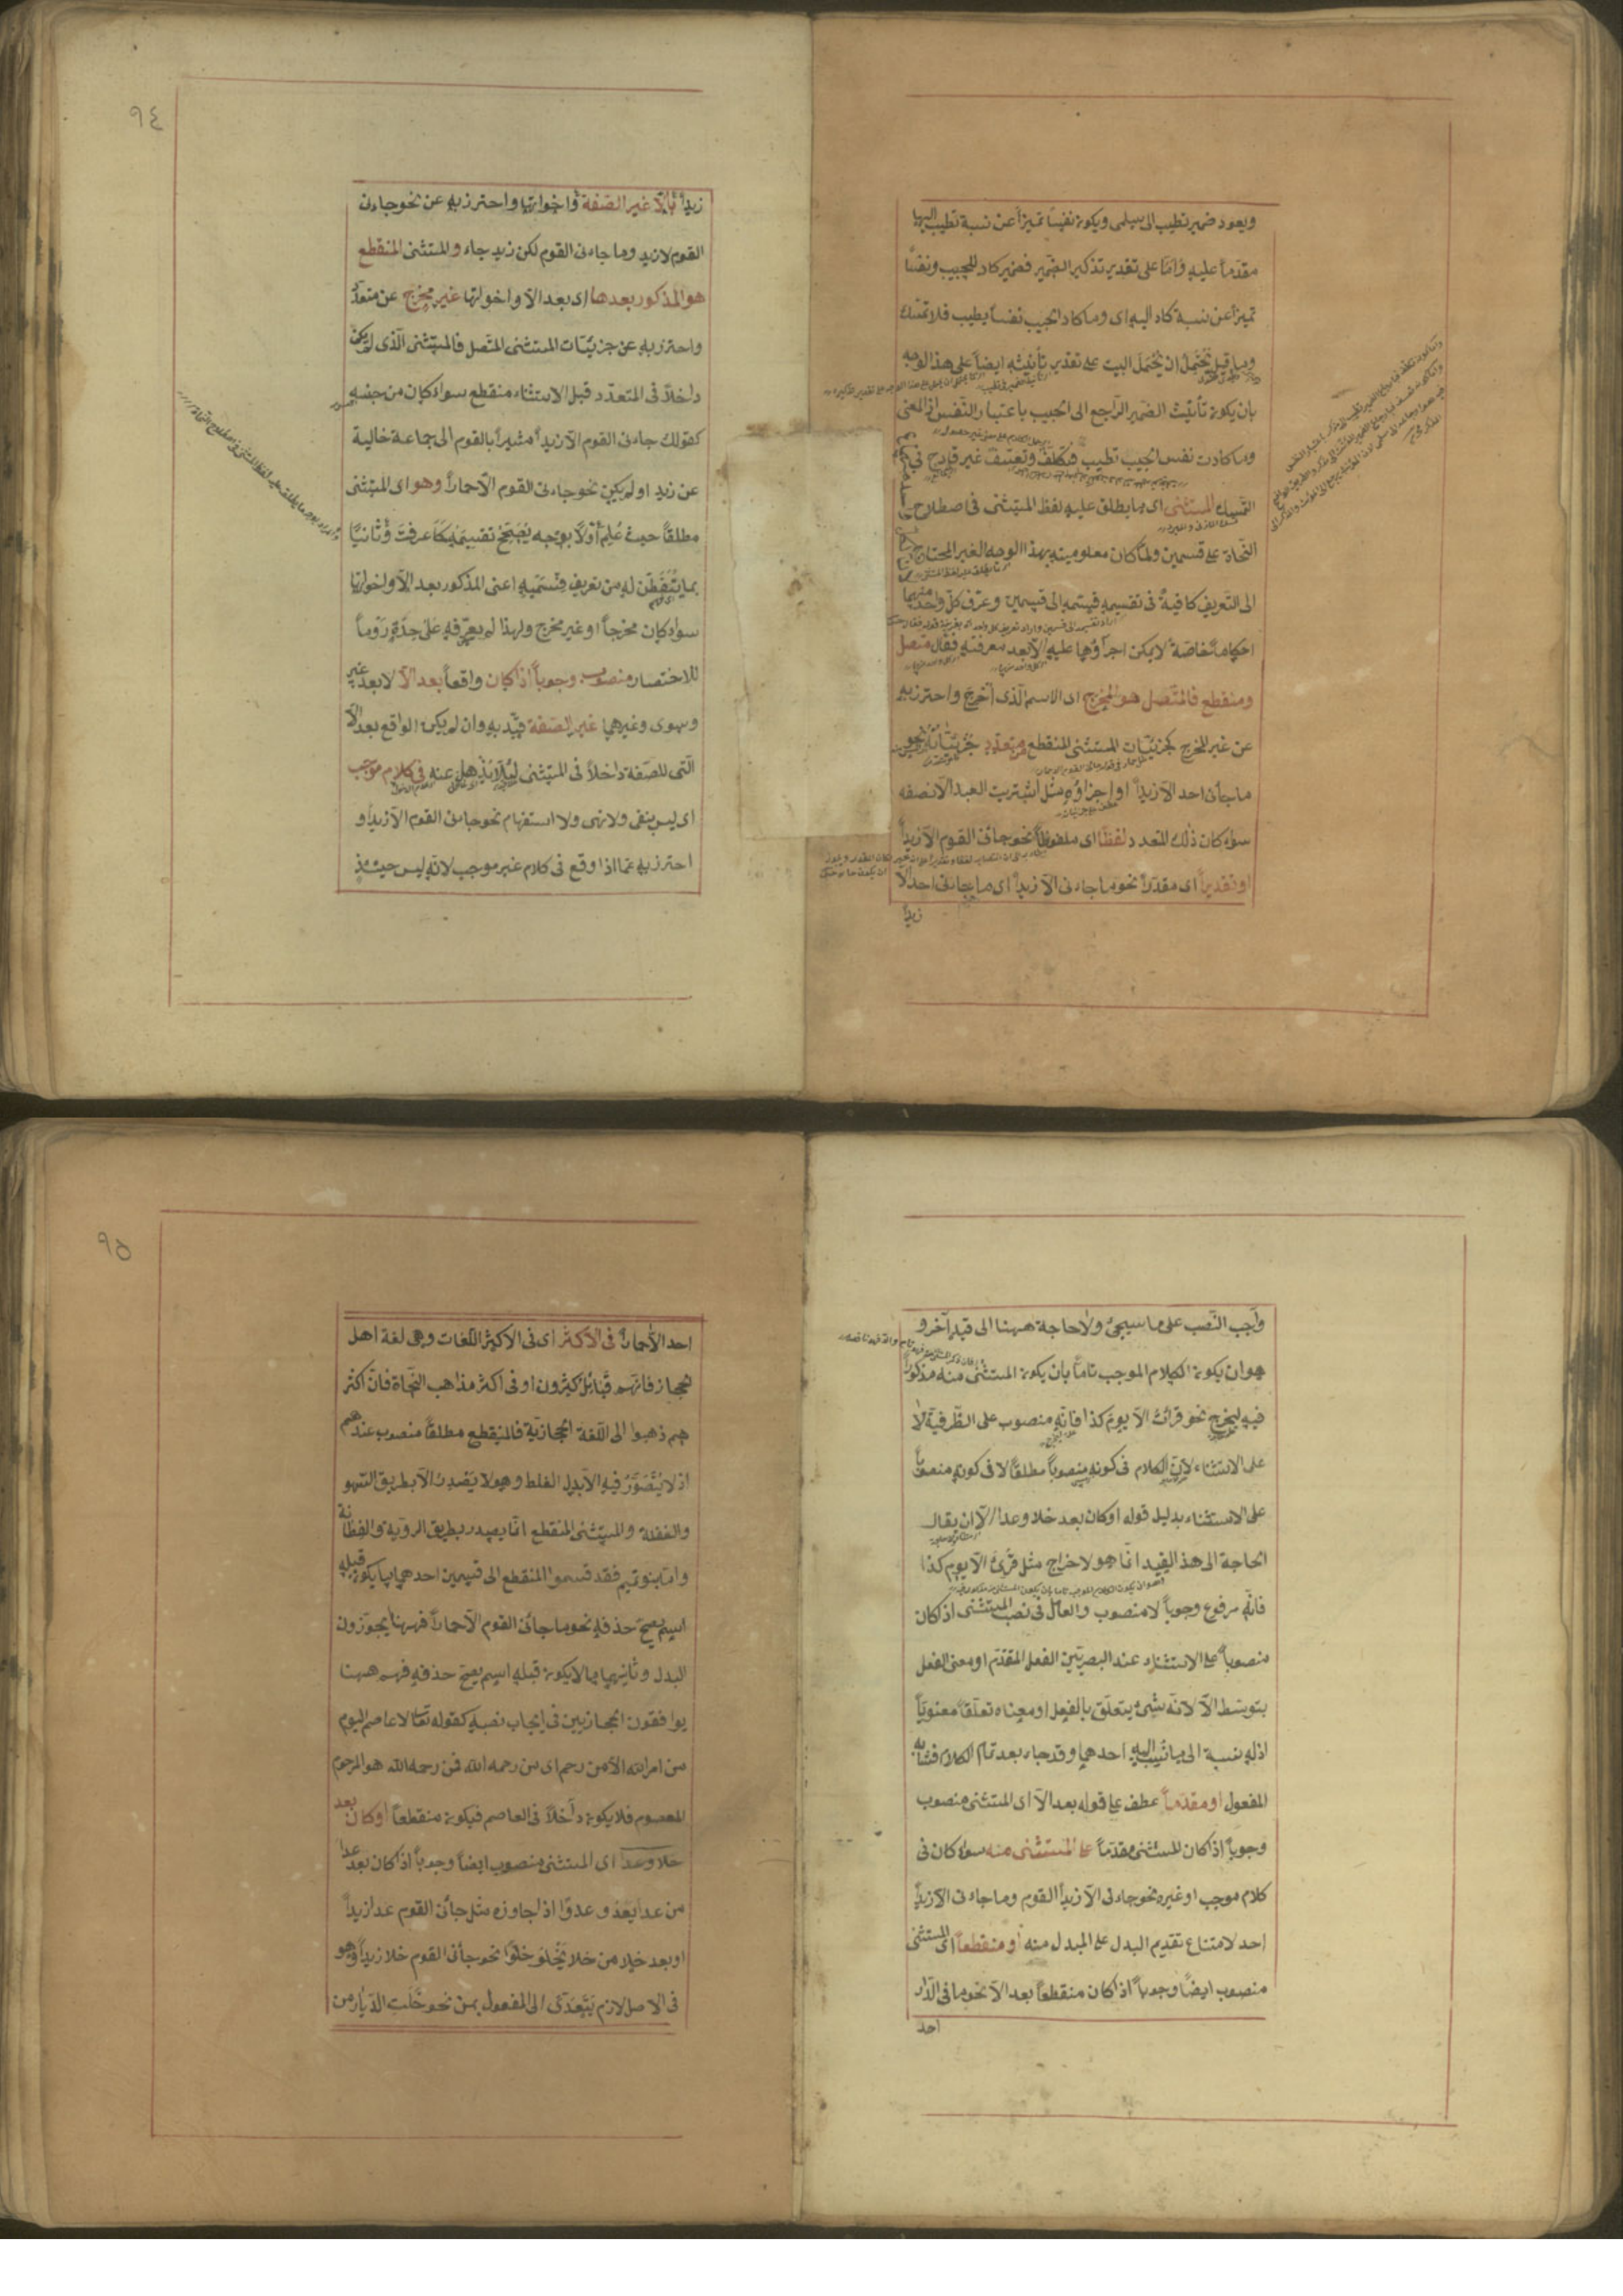 ويعود ضمير تطيب الى سلمى ويكون نفسا تميزاً عن نسبة تطيب اليها
مقدماً عليه واما على تقدير تذكير الضمير فضمير كاد للحبيب ونفسا
تميزاً عن نسبة كاد اليه اى وما كاد الحبيب نفساً يطيب فلا تمسك
وما قيل يُحتمل ان يُحمَل البيت على تقدير تأنيثه ايضاً على هذا الوجه
بان يكون تأنيث الضمير الراجع الى الحبيب باعتبار النفس اذ المعنى
وما كادت نفس الحبيب تطيب فتكلف وتعسف غير قادح فى
التمسك المستثنى اى ما يطلق عليه لفظ المستثنى فى اصطلاح
النحاة على قسمين ولما كان معلوميته بهذا الوجه الغير المحتاج
الى التعريف كافية فى تقسيمه قسمه الى قسمين وعرّف كل واحد منهما
احكاماً خاصة لا يمكن اجراؤها عليه الا بعد معرفته فقال متصل
ومنقطع فالمتصل هو المخرج اى الاسم الذى اُخرج واحترز به
عن غير المخرج كجزئيات المستثنى المنقطع من متعدد جزئياته نحو
ما جائنى احد الا زيداً او اجزاؤه مثل اشتريت العبد الا نصفه
سواء كان ذلك المتعدد لفظاً اى ملفوظاً نحو جائنى القوم الا زيداً
او تقديراً اى مقدراً نحو ما جاءنى الا زيداً اى ما جائنى احد الا
زيداً
٩٤
زيداً بالّا غير الصفة واخواتها واحترز به عن نحو جاءنى
القوم لا زيد وما جاءنى القوم لكن زيد جاء والمستثنى المنقطع
هو المذكور بعدها اى بعد الا واخواتها غير مخرج عن متعدد
واحترز به عن جزئيات المستثنى المتصل فالمستثنى الذى لم يكن
داخلاً فى المتعدد قبل الاستثناء منقطع سواء كان من جنسه
كقولك جاءنى القوم الا زيداً مشيراً بالقوم الى جماعة خالية
عن زيد او لم يكن نحو جاءنى القوم الا حماراً وهو اى المستثنى
مطلقاً حيث عُلِم اولاً بوجه يُصَحّح تقسيمه كما عرفت وثانياً
بما يُتَفَطّن له من تعريف قسميه اعنى المذكور بعد الا واخواتها
سواء كان مخرجاً او غير مخرج ولهذا لم يعرّفه على حدة روماً
للاختصار منصوب وجوباً اذا كان واقعاً بعد الا لا بعد غير
وسوى وغيرهما غير الصفة قيّد به وان لم يكن الواقع بعد الا
التى للصفة داخلاً فى المستثنى لئلا يذهل عنه فى كلام موجب
اى ليس بنفى ولا نهى ولا استفهام نحو جاءنى القوم الا زيداً و
احترز به عما اذا وقع فى كلام غير موجب لانه ليس حينئذ
واجب النصب على ما سيجئ ولا حاجة ههنا الى قيد آخر و
هو ان يكون الكلام الموجب تاماً بان يكون المستثنى منه مذكوراً
فيه ليخرج نحو قرأت الا يوم كذا فانه منصوب على الظرفية لا
على الاستثناء لان الكلام فى كونه منصوباً مطلقاً لا فى كونه منصوباً
على الاستثناء بدليل قوله او كان بعد خلا وعدا الا ان يقال
الحاجة الى هذا القيد انما هو لاخراج مثل قُرِئَ الا يوم كذا
فانه مرفوع وجوباً لا منصوب والعامل فى نصب المستثنى اذ كان
منصوباً على الاستثناء عند البصريين الفعل المقدم او معنى الفعل
بتوسط الا لانه شئ يتعلق بالفعل او معناه تعلقاً معنوياً
اذ له نسبة الى ما نسب اليه احدهما وقد جاء بعد تمام الكلام فشابه
المفعول او مقدماً عطف على قوله بعد الا اى المستثنى منصوب
وجوباً اذا كان المستثنى مقدماً على المستثنى منه سواء كان فى
كلام موجب او غيره نحو جاءنى الا زيداً القوم وما جاءنى الا زيداً
احد لامتناع تقديم البدل على المبدل منه او منقطعاً اى المستثنى
منصوب ايضاً وجوباً اذا كان منقطعاً بعد الا نحو ما فى الدار
احد
٩٥
احد الا حماراً فى الاكثر اى فى الاكثر اللغات وهى لغة اهل
الحجاز فانهم قبائل كثيرون او فى اكثر مذاهب النحاة فان اكثر
هم ذهبوا الى اللغة الحجازية فالمنقطع مطلقاً منصوب عندهم
اذ لا يُتَصَوَّر فيه الا بدل الغلط وهو لا يَصدر الا بطريق السهو
والغفلة والمستثنى المنقطع انما يصدر بطريق الروية والفطانة
واما بنو تميم فقد قسموا المنقطع الى قسمين احدهما ما يكون قبله
اسم يصح حذفه نحو ما جائنى القوم الا حماراً فههنا يجوزون
البدل وثانيهما ما لا يكون قبله اسم يصح حذفه فهم ههنا
يوافقون الحجازيين فى ايجاب نصبه كقوله تعالى لا عاصم اليوم
من امر الله الا من رحم اى من رحمه الله فمن رحمه الله هو المرحوم
المعصوم فلا يكون داخلاً فى العاصم فيكون منقطعاً او كان بعد
خلا وعدا اى المستثنى منصوب ايضاً وجوباً اذا كان بعد عدا
من عدا يعدو عدوًا اذا جاوزه مثل جائنى القوم عدا زيداً
او بعد خلا من خلا يخلو خلوًا نحو جائنى القوم خلا زيداً وهو
فى الاصل لازم يَتَعَدّى الى المفعول بمن نحو خَلَت الديار من